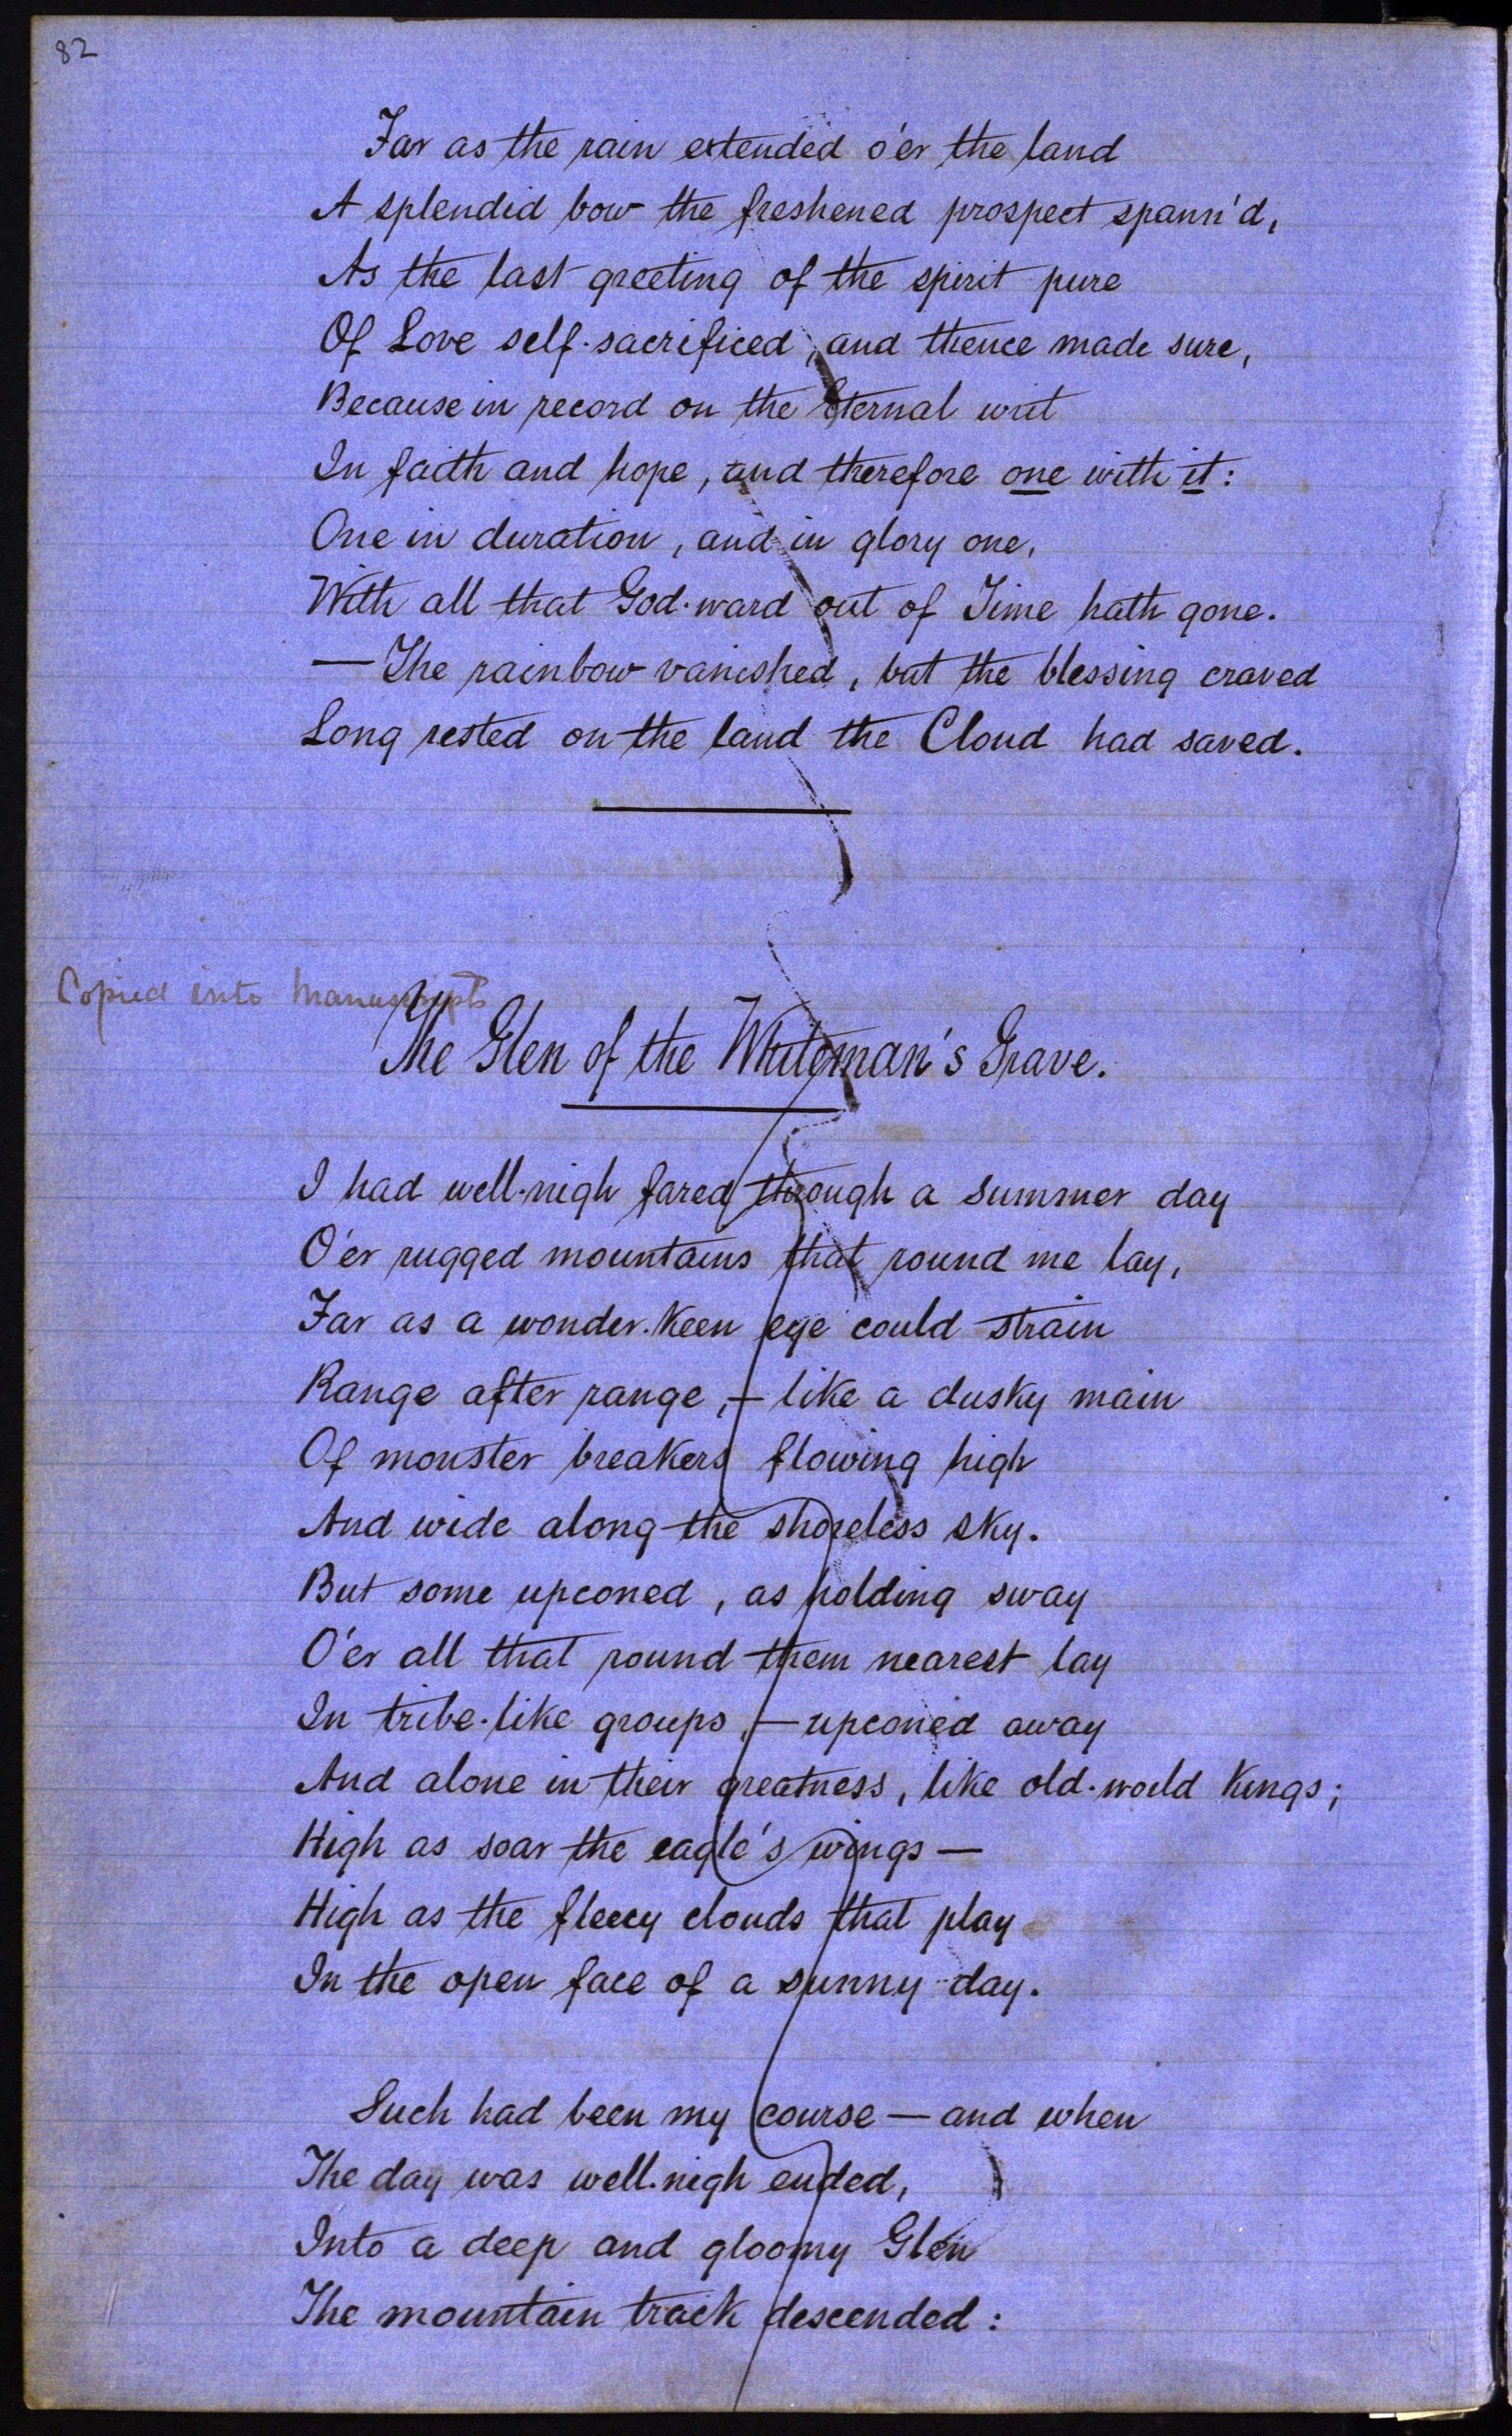 82
Far as the rain extended o'er the land
A splendid bow the freshened prospect spann'd,
As the last greeting of the spirit pure
Of Love self-sacrificed, and thence made sure,
Because in record on the Eternal writ
In faith and hope, and therefore one with it:
One in duration, and in glory one,
With all that God-ward out of Time hath gone.
— The rainbow vanished, but the blessing craved
Long rested on the land the Cloud had saved.
Copied into Manuscripts
The Glen of the Whiteman's Grave.
I had well-nigh fared through a summer day
O'er rugged mountains that round me lay,
Far as a wonder-keen eye could strain
Range after range, — like a dusky main
Of monster breakers flowing high
And wide along the shoreless sky.
But some upconed, as holding sway
O'er all that round them nearest lay
In tribe-like groups, — upconed away
And alone in their greatness, like old-world Kings;
High as soar the eagle's wings —
High as the fleecy clouds that play
In the open face of a sunny day.
Such had been my course — and when
The day was well-nigh ended,
Into a deep and gloomy Glen
The mountain track descended: